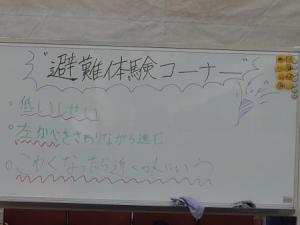 "避難体験コーナー"
・低いしせい
・左かべをさわりながら進む
○こわくなったら近くの人にいう